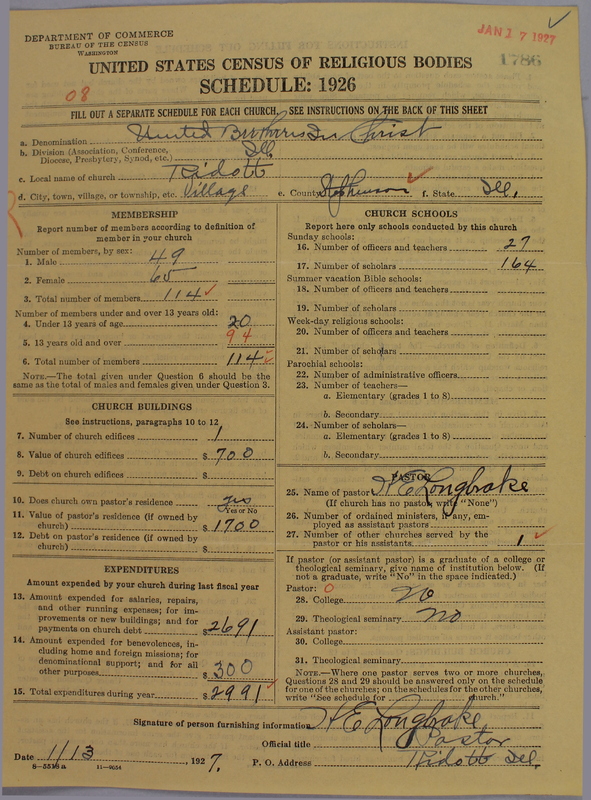 DEPARTMENT OF COMMERCE
BUREAU OF THE CENSUS
WASHINGTON
JAN 17 1927
1786
UNITED STATES CENSUS OF RELIGIOUS BODIES
SCHEDULE: 1926
08
FILL OUT A SEPARATE SCHEDULE FOR EACH CHURCH. SEE INSTRUCTIONS ON THE BACK OF THIS SHEET
a. Denomination United Brethren In Christ
b. Division (Association, Conference, Diocese, Presbytery, Synod, etc.) Ill.
c. Local name of church Ridott
d. City, town, village, or township, etc. Village e. County Stephenson f. State Ill.
MEMBERSHIP
Report number of members according to definition of
member in your church
Number of members, by sex:
1. Male 49
2. Female 65
3. Total number of members 114
Number of members under and over 13 years old:
4. Under 13 years of age 20
5. 13 years old and over 94
6. Total number of members 114
NOTE.—The total given under Question 6 should be the
same as the total of males and females given under Question 3.
CHURCH BUILDINGS
See instructions, paragraphs 10 to 12
7. Number of church edifices 1
8. Value of church edifices $ 700
9. Debt on church edifices $
10. Does church own pastor's residence yes
Yes or No
11. Value of pastor's residence (if owned by
church) $ 1700
12. Debt on pastor's residence (if owned by
church) $
EXPENDITURES
Amount expended by your church during last fiscal year
13. Amount expended for salaries, repairs,
and other running expenses; for im-
provements or new buildings; and for
payments on church debt $ 2691
14. Amount expended for benevolences, in-
cluding home and foreign missions; for
denominational support; and for all
other purposes $ 300
15. Total expenditures during year $ 2991
CHURCH SCHOOLS
Report here only schools conducted by this church
Sunday schools:
16. Number of officers and teachers 27
17. Number of scholars 164
Summer vacation Bible schools:
18. Number of officers and teachers
19. Number of scholars
Week-day religious schools:
20. Number of officers and teachers
21. Number of scholars
Parochial schools:
22. Number of administrative officers
23. Number of teachers—
a. Elementary (grades 1 to 8)
b. Secondary
24. Number of scholars—
a. Elementary (grades 1 to 8)
b. Secondary
PASTOR
25. Name of pastor H E Longbrake
(If church has no pastor, write "None")
26. Number of ordained ministers, if any, em-
ployed as assistant pastors
27. Number of other churches served by the
pastor or his assistants 1
If pastor (or assistant pastor) is a graduate of a college or
theological seminary, give name of institution below. (If
not a graduate, write "No" in the space indicated.)
Pastor: 0
28. College No
29. Theological seminary No
Assistant pastor:
30. College
31. Theological seminary
NOTE.—Where one pastor serves two or more churches,
Questions 28 and 29 should be answered only on the schedule
for one of the churches; on the schedules for the other churches,
write "See schedule for church."
Signature of person furnishing information H E Longbrake
Official title Pastor
Date 1/13, 1927. P. O. Address Ridott Ill.
8—5518a 11—9654